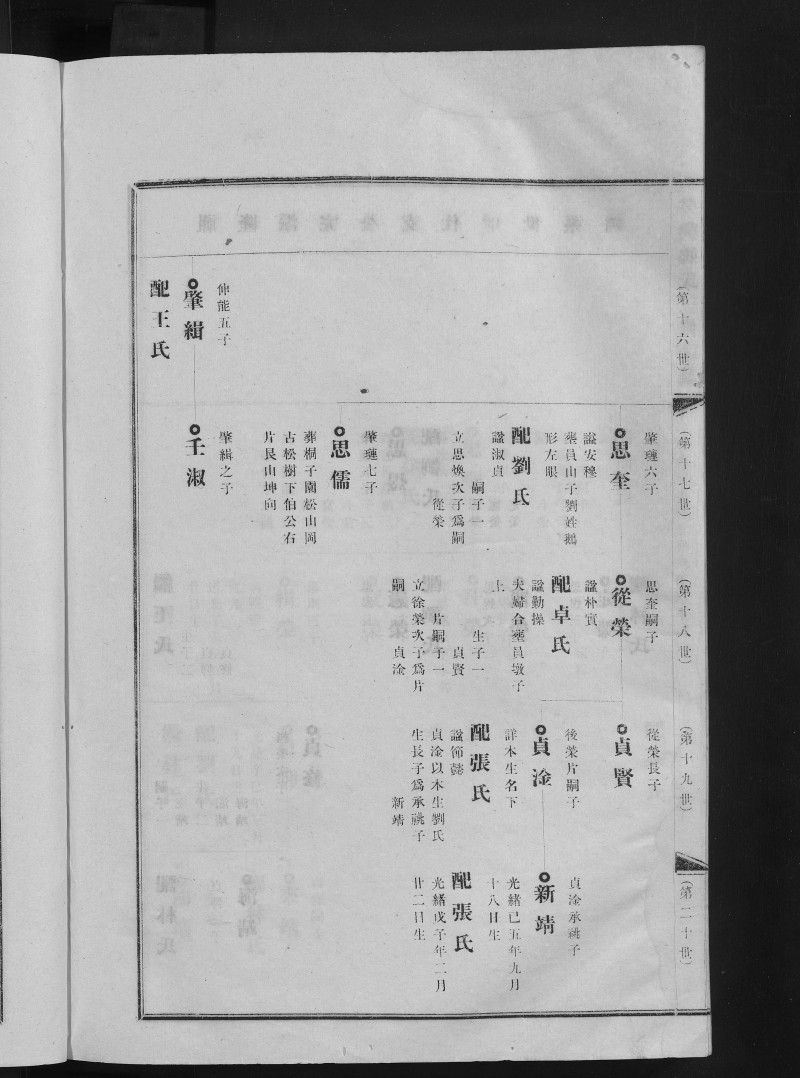 (第十六世)
仲能五子
肇緝
配王氏
(第十七世)
肇璉六子
思奎
諡安穆
塟員山子劉姓鵝
形左眼
配劉氏
諡淑貞
嗣子一
立思煥次子爲嗣
從榮
肇璉七子
思儒
葬桐子園松山岡
古松樹下伯公右
片艮山坤向
肇緝之子
壬淑
(第十八世)
思奎嗣子
從榮
諡朴實
配卓氏
諡勤操
夫婦合塟員墩子
上
生子一
貞賢
片嗣子一
立徐榮次子爲片
嗣
貞淦
(第十九世)
從榮長子
貞賢
後榮片嗣子
貞淦
詳本生名下
配張氏
諡節懿
貞淦以本生劉氏
生長子爲承祧子
新靖
(第二十世)
貞淦承祧子
新靖
光緒己五年九月
十八日生
配張氏
光緒戊子年二月
廿二日生